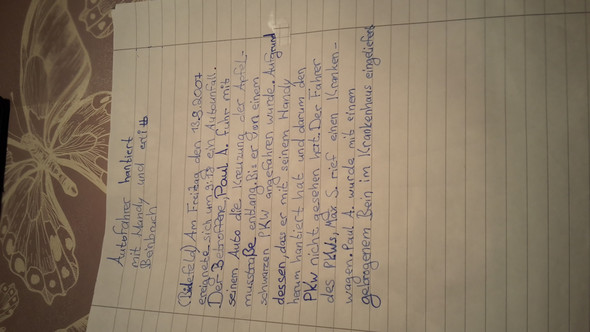 Autofahrer hantiert
mit Handy und erlitt
Beinbruch
Am Freitag den 13.8.2007
ereignete sich um 9:13 ein Autounfall.
Der Betroffene, Paul A. fuhr mit
seinem Auto die Kreuzung der Apfel-
musstraße entlang. Bis er von einem
schwarzen PKW angefahren wurde. Aufgrund
dessen, das er mit seinem Handy
herum hantiert hat und darum den
PKW nicht gesehen hat. Der Fahrer
des PKWs, Max S. rief einen Kranken-
wagen. Paul A. wurde mit einem
gebrogenem Bein im Krankenhaus eingeliefert